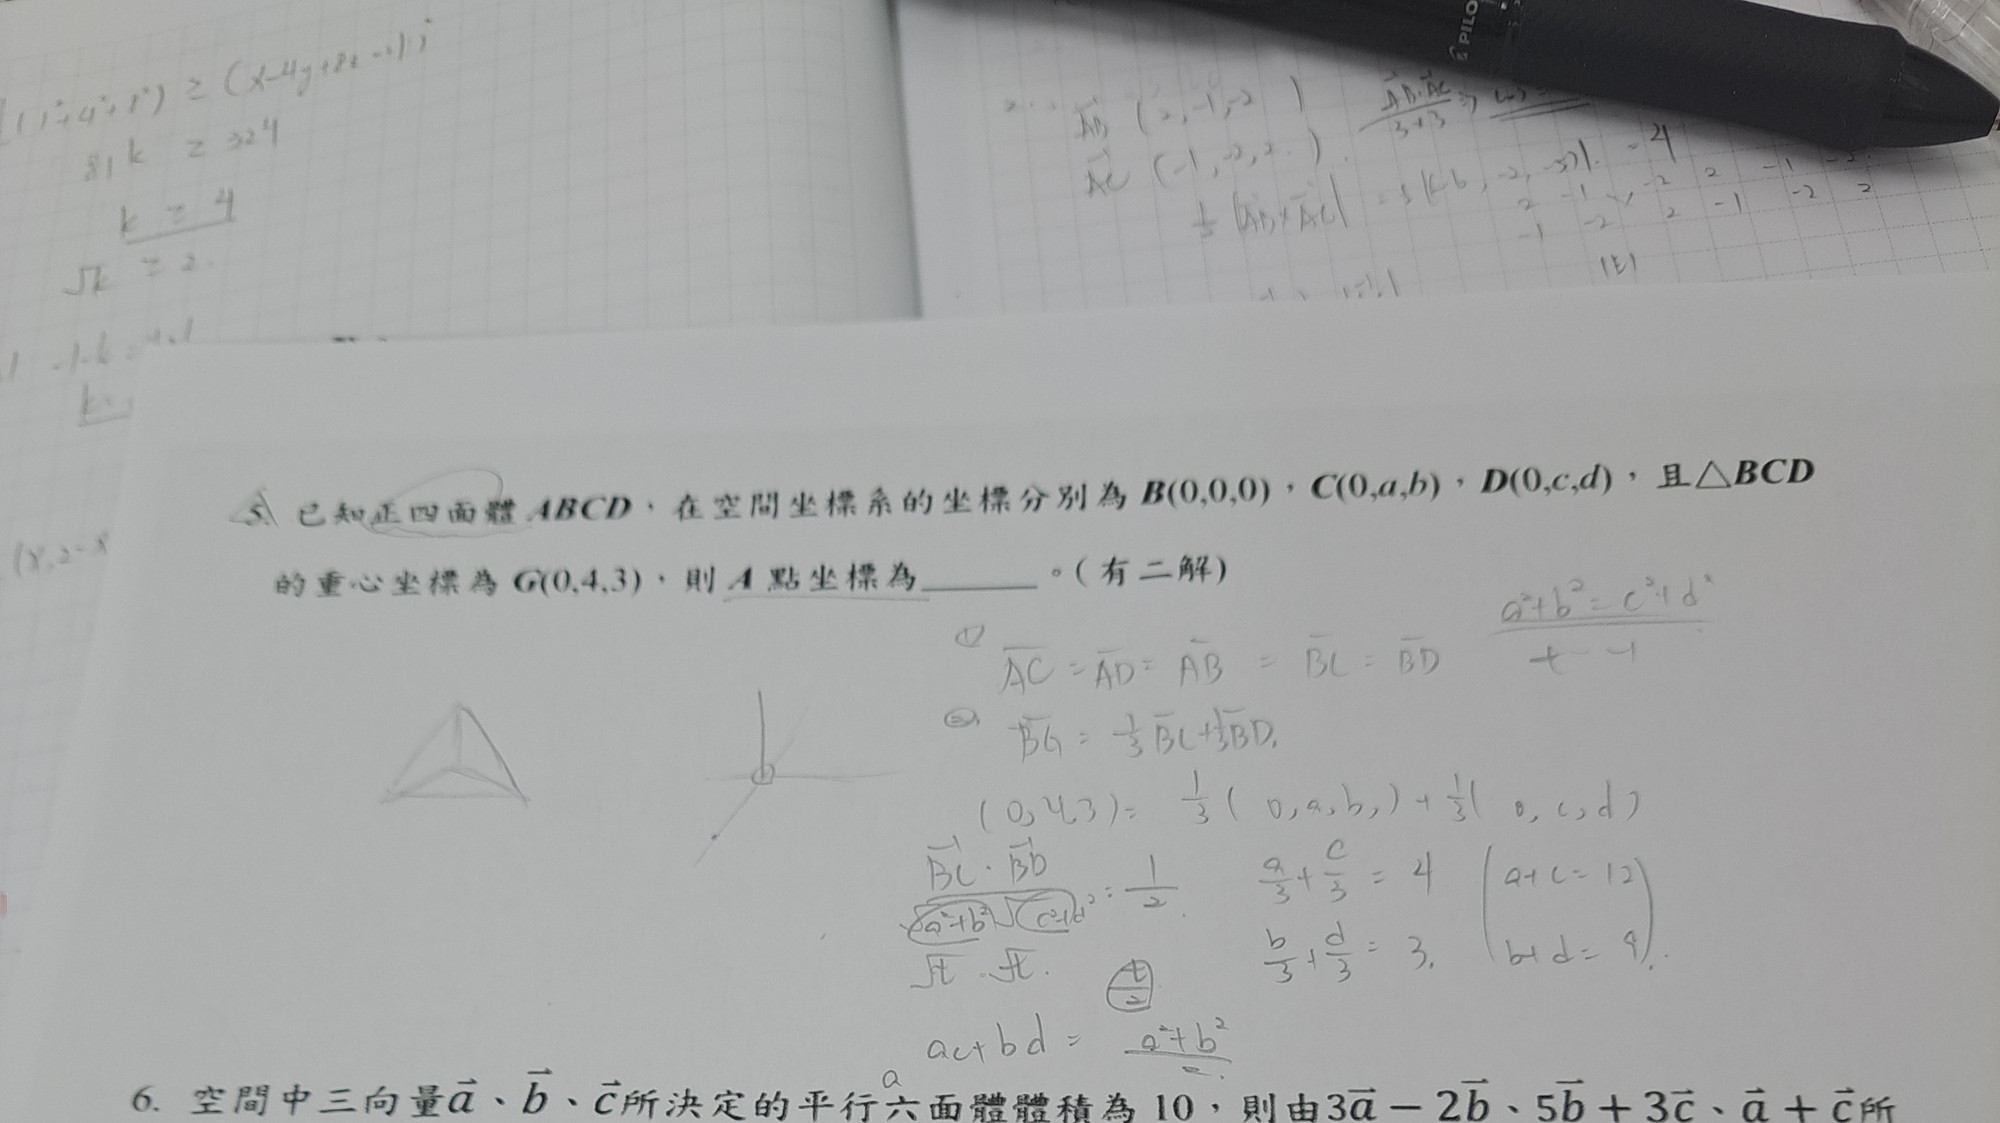 (1²+4²+8²) ≥ (x-4y+8z
81k ≥ 324
k ≥ 4
√k ≥ 2.
PILO
AB (2,-1,-2)
AC (-1,-2,2)
AB·AC
3+3
|AB×AC|
2 -1 -2 2 -1 -2
-1 -2 2 -1 -2 2
5. 已知正四面體 ABCD，在空間坐標系的坐標分別為 B(0,0,0)，C(0,a,b)，D(0,c,d)，且△BCD
的重心坐標為 G(0,4,3)，則 A 點坐標為______。(有二解)
a²+b²=c²+d²
① AC = AD = AB = BC = BD
② BG = 1/3 BC + 1/3 BD
(0,4,3) = 1/3 (0,a,b,) + 1/3 (0,c,d)
BC · BD / √a²+b² √c²+d² = 1/2
√t · √t.
t/2
a/3 + c/3 = 4
a+c = 12
b/3 + d/3 = 3.
b+d = 9
ac+bd = a²+b² / 2
a
6. 空間中三向量a⃗、b⃗、c⃗所決定的平行六面體體積為 10，則由3a⃗ − 2b⃗、5b⃗ + 3c⃗、a⃗ + c⃗所